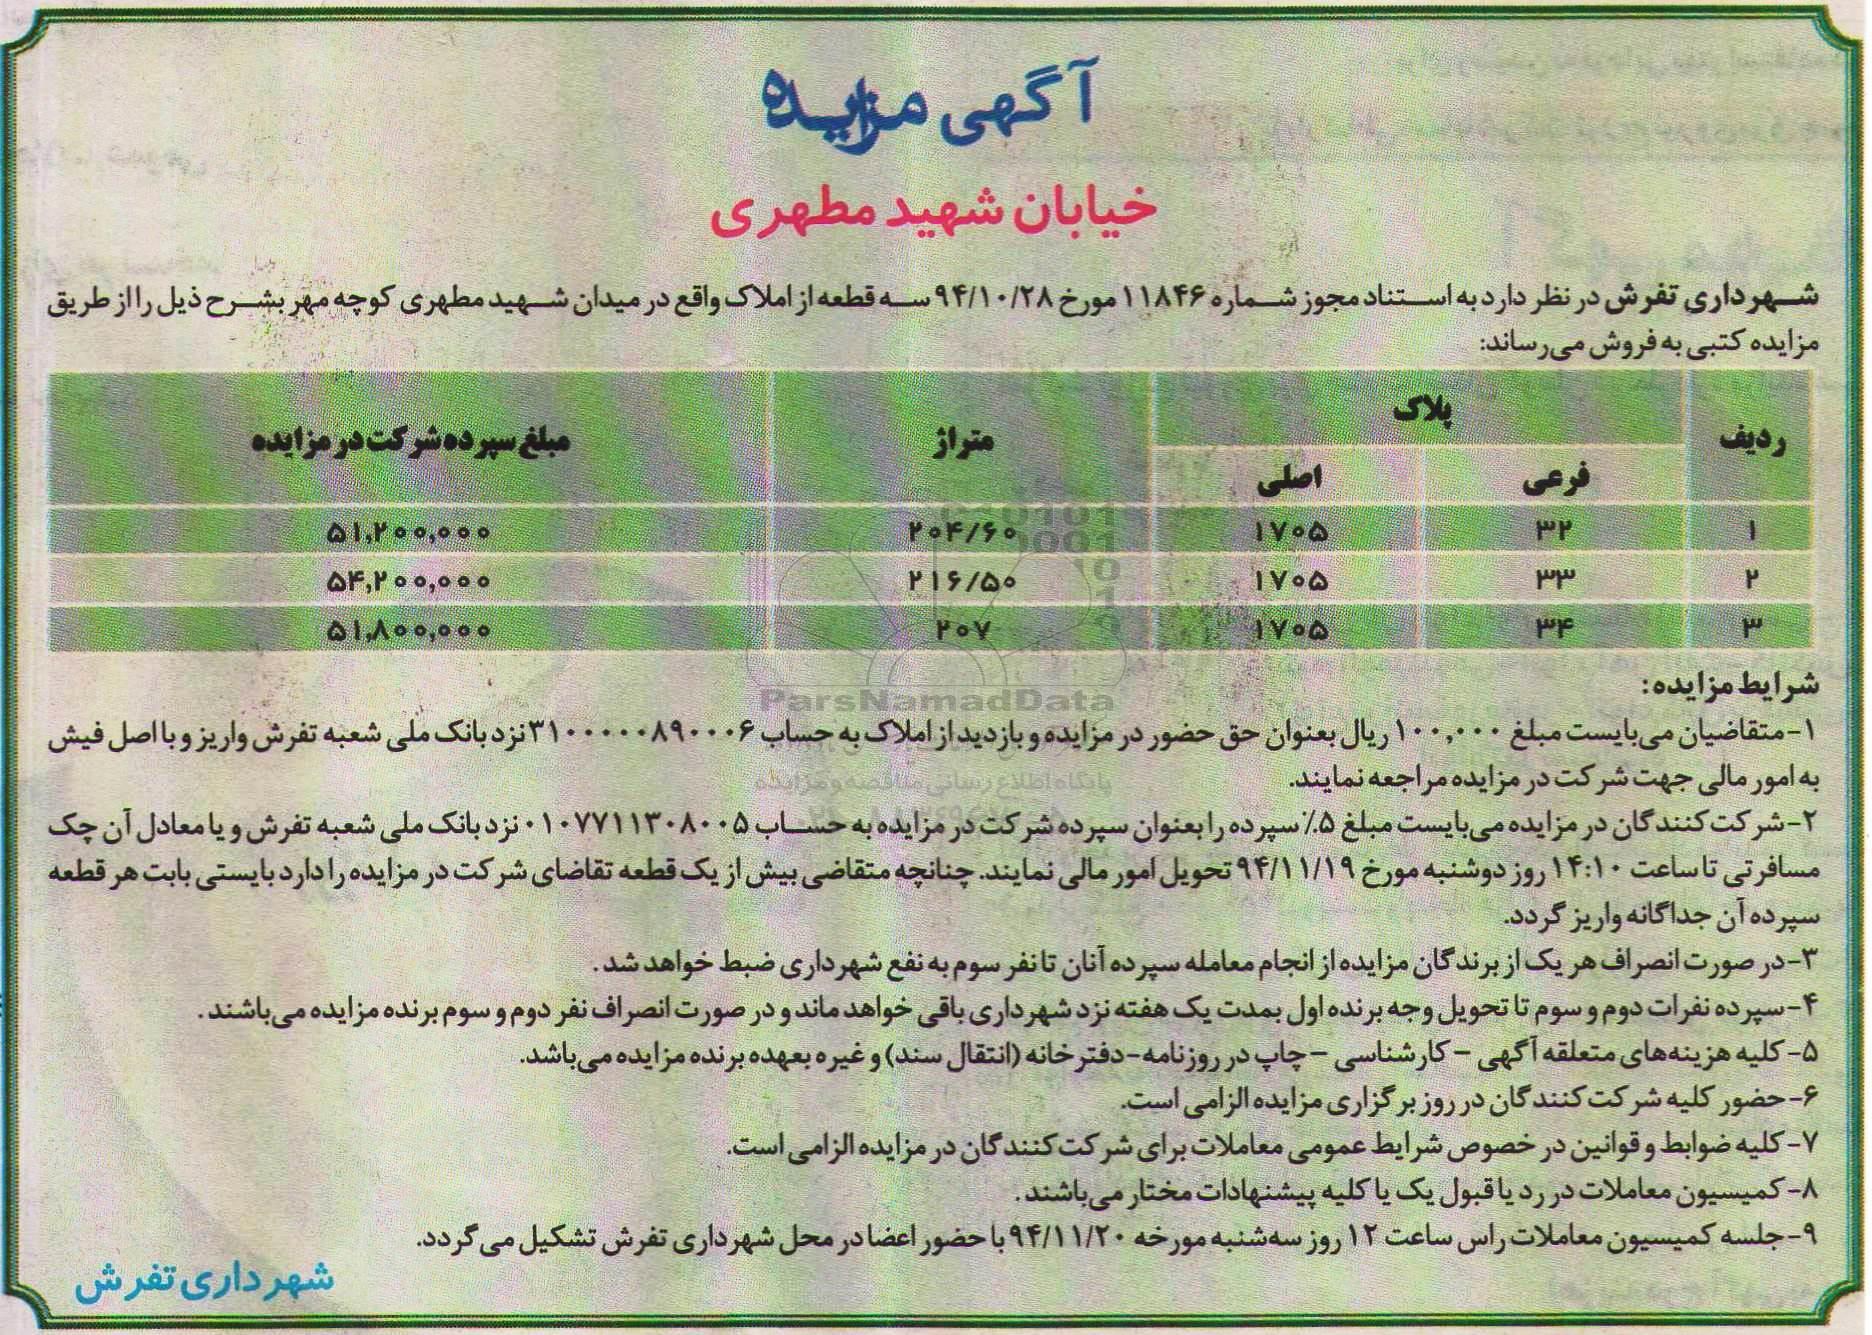 آگهی مزایده
خیابان شهید مطهری
شهرداری تفرش در نظر دارد به استناد مجوز شماره ۱۱۸۴۶ مورخ ۹۴/۱۰/۲۸ سه قطعه از املاک واقع در میدان شهید مطهری کوچه مهر بشرح ذیل را از طریق
مزایده کتبی به فروش می‌رساند:
ردیف پلاک متراژ مبلغ سپرده شرکت در مزایده
فرعی اصلی
۱ ۳۲ ۱۷۰۵ ۲۰۴/۶۰ ۵۱,۲۰۰,۰۰۰
۲ ۳۳ ۱۷۰۵ ۲۱۶/۵۰ ۵۴,۲۰۰,۰۰۰
۳ ۳۴ ۱۷۰۵ ۲۰۷ ۵۱,۸۰۰,۰۰۰
ParsNamadData
شرایط مزایده:
۱-متقاضیان می‌بایست مبلغ ۱۰۰,۰۰۰ ریال بعنوان حق حضور در مزایده و بازدید از املاک به حساب ۳۱۰۰۰۰۰۸۹۰۰۰۶ نزد بانک ملی شعبه تفرش واریز و با اصل فیش
به امور مالی جهت شرکت در مزایده مراجعه نمایند.
پایگاه اطلاع رسانی مناقصه و مزایده
۲-شرکت‌کنندگان در مزایده می‌بایست مبلغ ۵٪ سپرده را بعنوان سپرده شرکت در مزایده به حساب ۰۱۰۷۷۱۱۳۰۸۰۰۵ نزد بانک ملی شعبه تفرش و یا معادل آن چک
مسافرتی تا ساعت ۱۴:۱۰ روز دوشنبه مورخ ۹۴/۱۱/۱۹ تحویل امور مالی نمایند. چنانچه متقاضی بیش از یک قطعه تقاضای شرکت در مزایده را دارد بایستی بابت هر قطعه
سپرده آن جداگانه واریز گردد.
۳-در صورت انصراف هر یک از برندگان مزایده از انجام معامله سپرده آنان تا نفر سوم به نفع شهرداری ضبط خواهد شد.
۴-سپرده نفرات دوم و سوم تا تحویل وجه برنده اول بمدت یک هفته نزد شهرداری باقی خواهد ماند و در صورت انصراف نفر دوم و سوم برنده مزایده می‌باشند.
۵-کلیه هزینه‌های متعلقه آگهی – کارشناسی – چاپ در روزنامه-دفترخانه (انتقال سند) و غیره بعهده برنده مزایده می‌باشد.
۶-حضور کلیه شرکت‌کنندگان در روز برگزاری مزایده الزامی است.
۷-کلیه ضوابط و قوانین در خصوص شرایط عمومی معاملات برای شرکت‌کنندگان در مزایده الزامی است.
۸-کمیسیون معاملات در رد یا قبول یک یا کلیه پیشنهادات مختار می‌باشند.
۹-جلسه کمیسیون معاملات راس ساعت ۱۲ روز سه‌شنبه مورخه ۹۴/۱۱/۲۰ با حضور اعضا در محل شهرداری تفرش تشکیل می‌گردد.
شهرداری تفرش